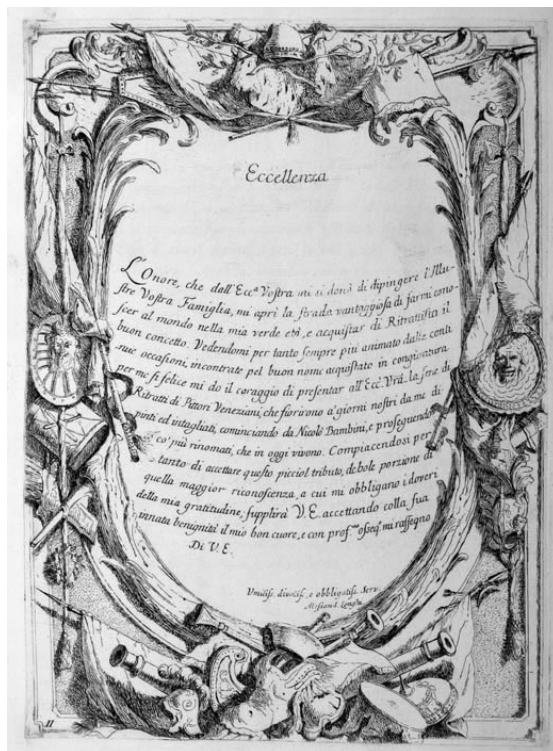 Eccellenza
L'Onore, che dall'Ecc.ª Vostra mi si donò di dipingere l'Illu-
stre Vostra Famiglia, mi aprì la strada vantaggiosa di farmi cono-
scer al mondo nella mia verde età, e acquistar di Ritrattista il
buon concetto. Vedendomi per tanto sempre più animato dalle conti
nue occasioni, incontrate pel buon nome acquistato in congiuntura
per me sì felice mi do il coraggio di presentar all'Ecc. Vrã. la serie di
Ritratti di Pittori Veneziani, che fiorirono a'giorni nostri da me di
pinti ed intagliati, cominciando da Nicolò Bambini, e proseguendo
co' più rinomati, che in oggi vivono. Compiacendosi per
tanto di accettare questo picciol tributo, debole porzione di
quella maggior riconoscenza, a cui mi obbligano i doveri
della mia gratitudine, supplirà V. E. accettando colla sua
innata benignità il mio bon cuore, e con prof.mo osseq. mi rassegno
Di V. E.
Umiliss. divotiss. e obbligatiss. Serv.
Alessan. Longhi
II